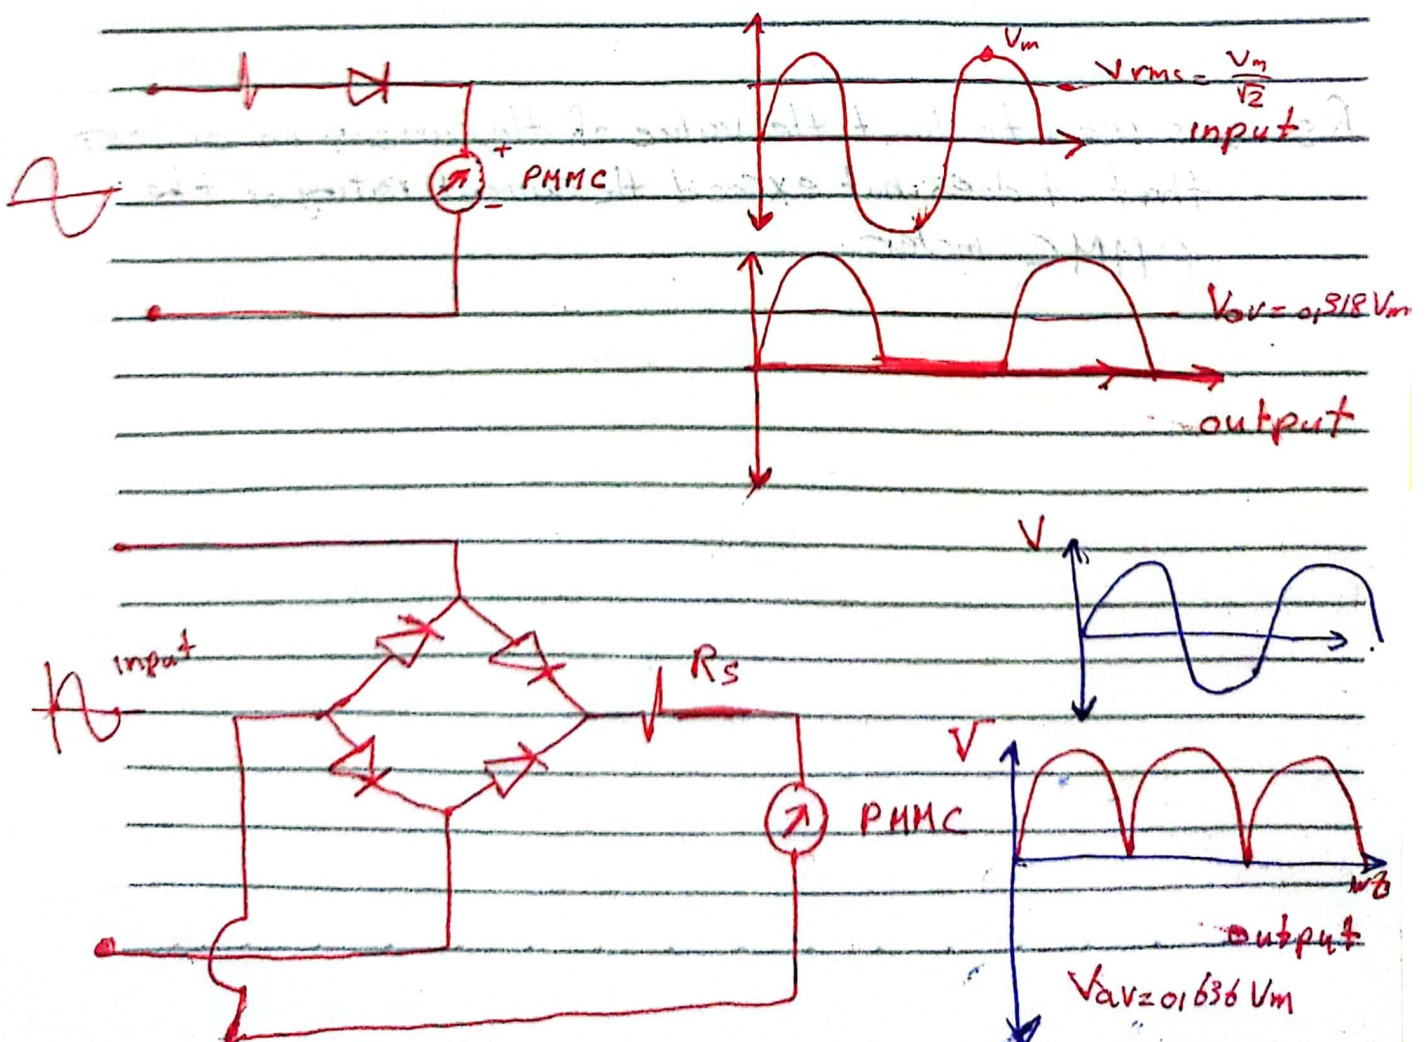 Vm
Vrms = Vm/√2
input
+
PMMC
-
Vav = 0,318 Vm
output
V
input
Rs
V
PMMC
wt
output
Vav = 0,636 Vm